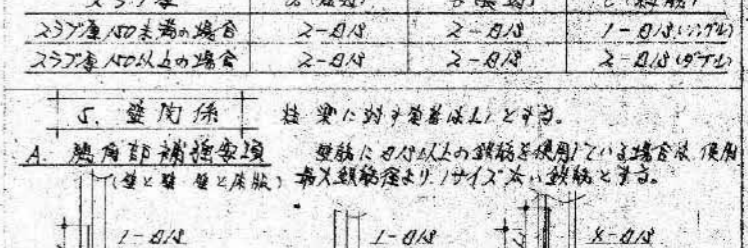 スラブ厚150未満の場合 2-D13 2-D13 1-D13(シングル)
スラブ厚150以上の場合 2-D13 2-D13 2-D13(ダブル)
5. 壁関係 柱 梁に対する定着はL1とする。
A. 隅角部補強要項 壁筋にD13以上の鉄筋を使用している場合は 使用
(壁と壁 壁と床版) 最大鉄筋径より 1サイズ太い鉄筋とする。
1-D13 1-D13 X-D13